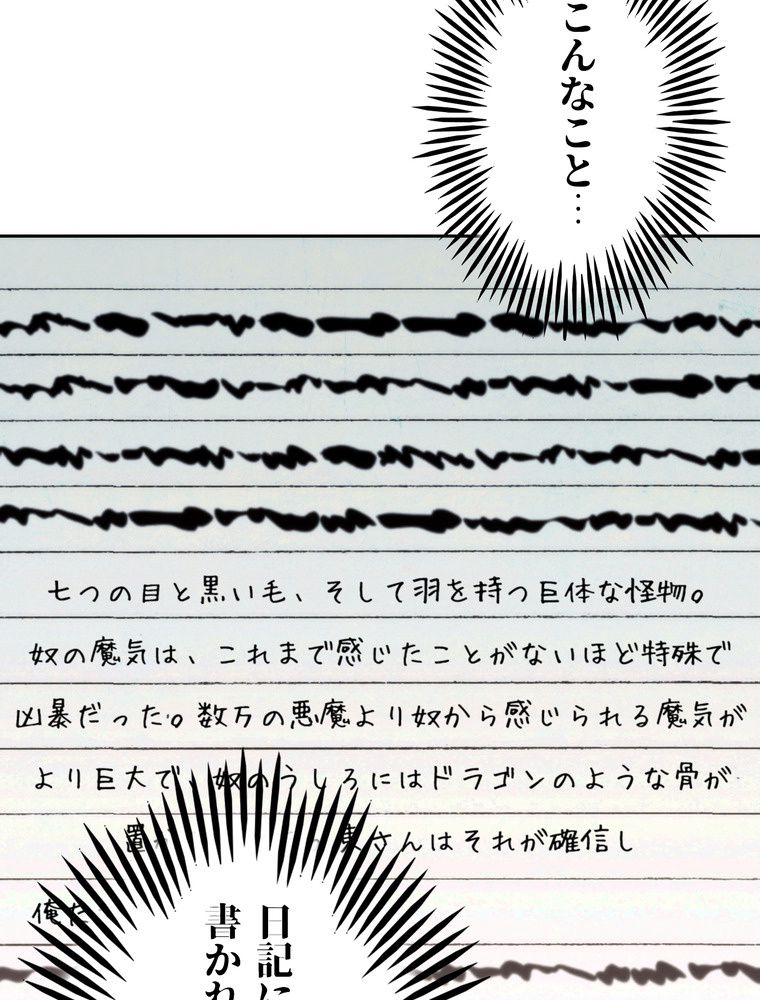 こんなこと…
七つの目と黒い毛、そして羽を持つ巨体な怪物。
奴の魔気は、これまで感じたことがないほど特殊で
凶暴だった。数万の悪魔より奴から感じられる魔気が
より巨大で、奴のうしろにはドラゴンのような骨が
置か
さんはそれが確信し
俺た
日記に
書かれ